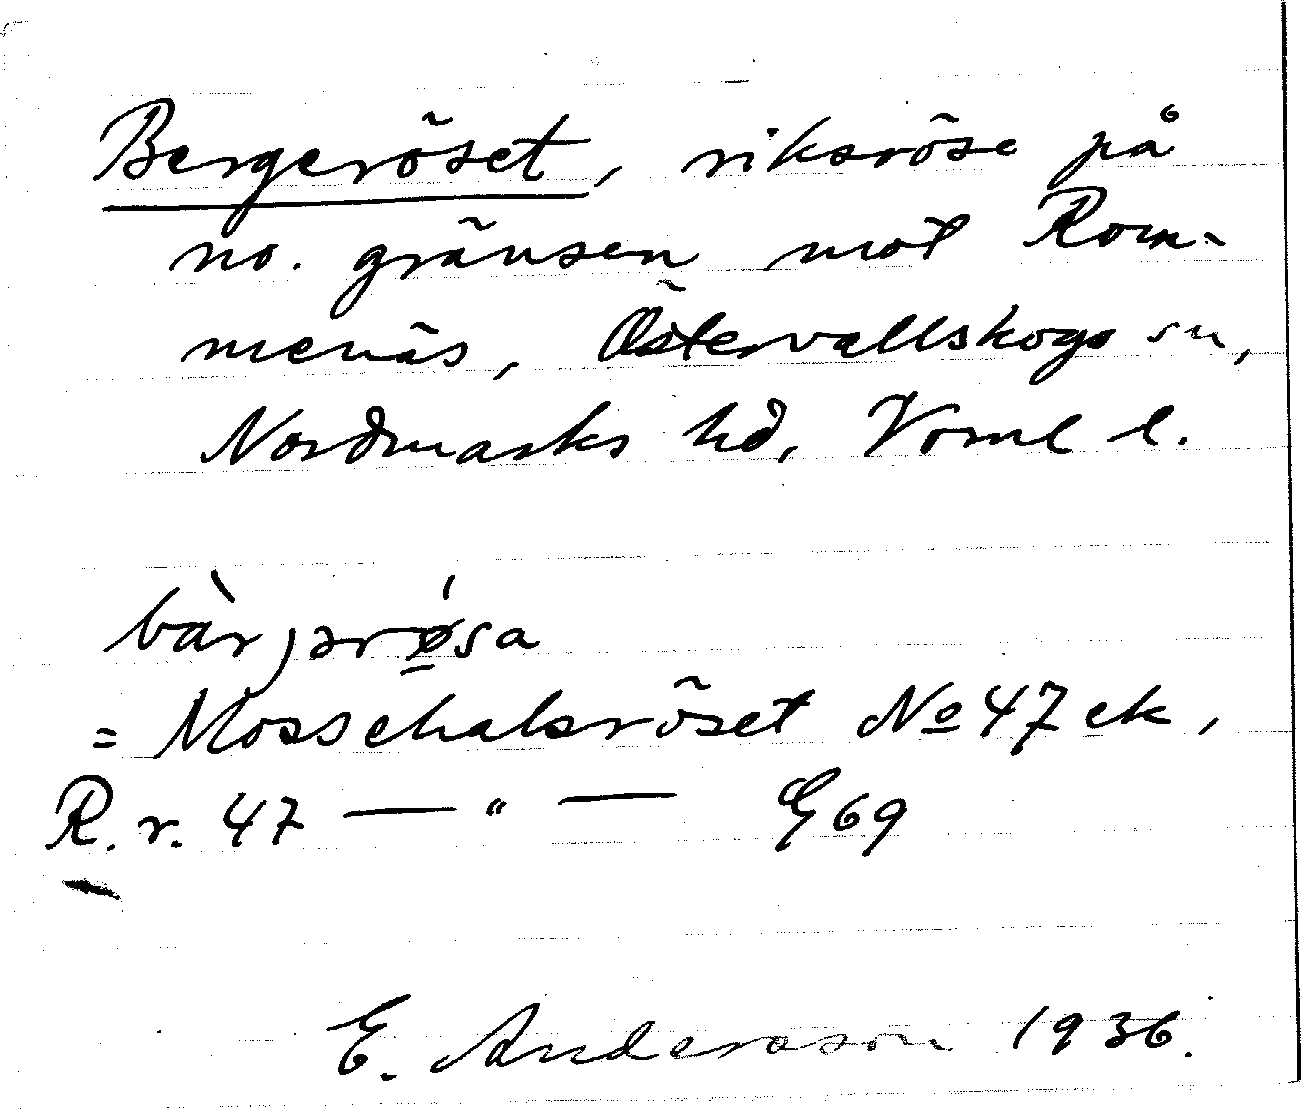 Bergeröset, riksröse på
no. gränsen mot Rom-
menäs, Östervallskogs sn,
Nordmarks hd, Vrml l.
bàrjərǿ̱sa
= Mossehalsröset No 47 ek,
R. r. 47 — " — G 69
E. Andersson 1936.